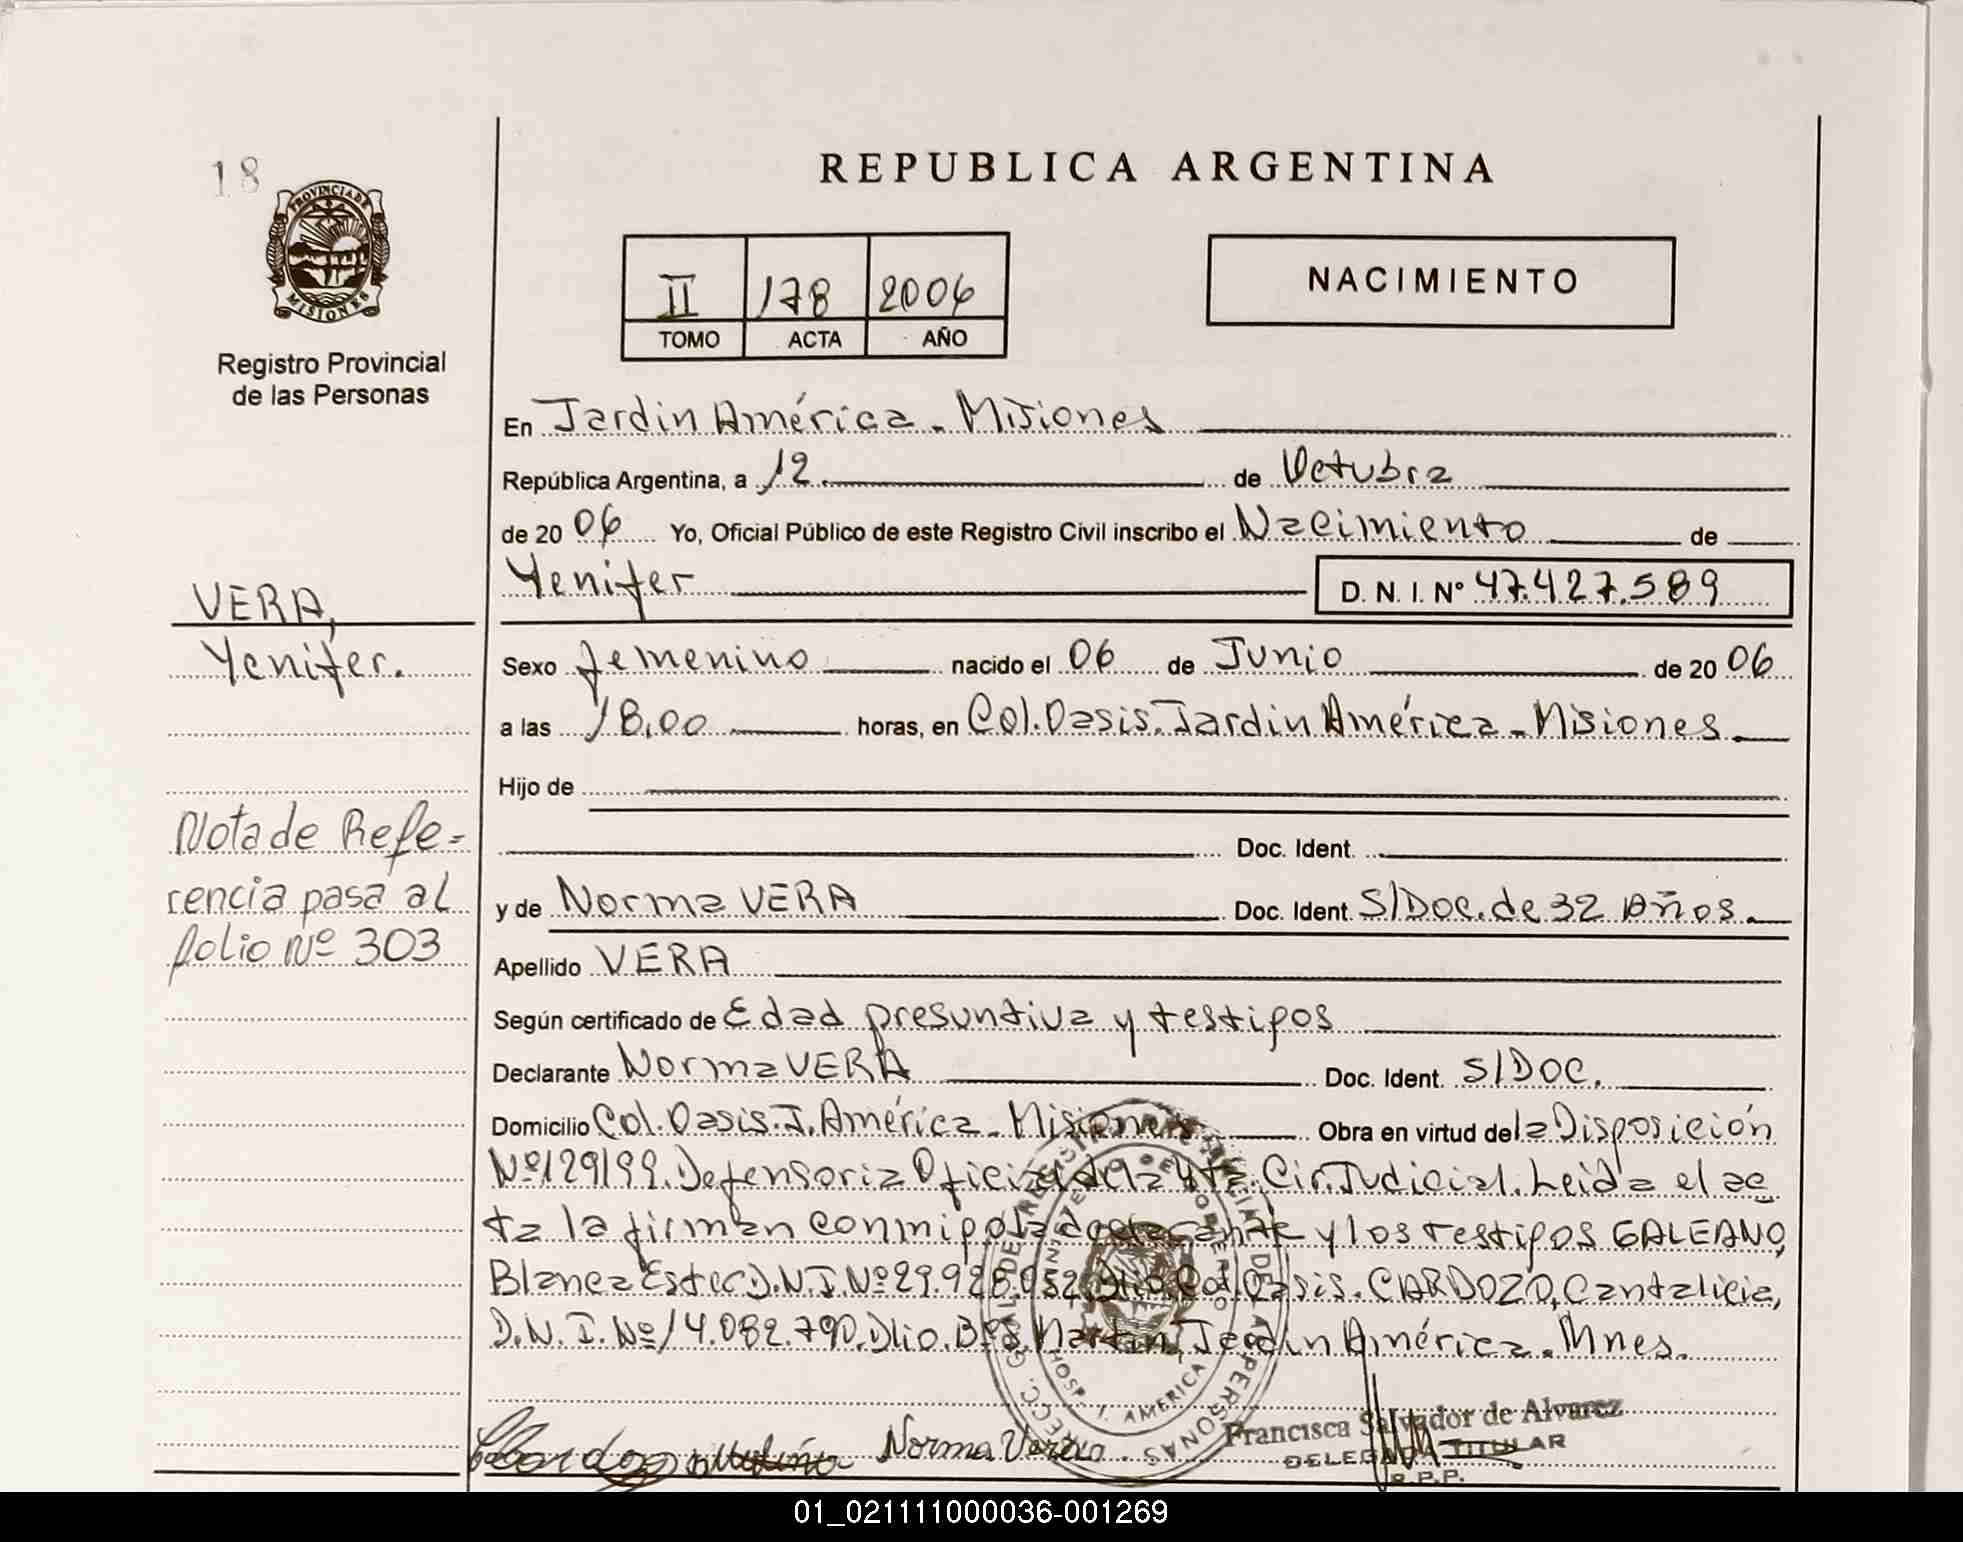 18
PROVINCIA DE
MISIONES
Registro Provincial
de las Personas
REPUBLICA ARGENTINA
II 178 2006
TOMO ACTA AÑO
NACIMIENTO
En Jardin América - Misiones
República Argentina, a 12 de Octubre
de 20 06 Yo, Oficial Público de este Registro Civil inscribo el Nacimiento de
Yenifer D. N. I. Nº 47.427.589
VERA,
Yenifer.
Sexo femenino nacido el 06 de Junio de 20 06
a las 18,00 horas, en Col. Oasis. Jardin América - Misiones
Hijo de
Doc. Ident.
Nota de Refe=
rencia pasa al
folio Nº 303
y de Norma VERA Doc. Ident. S/Doc. de 32 Años.
Apellido VERA
Según certificado de Edad presuntiva y testigos
Declarante Norma VERA Doc. Ident. S/DOC.
Domicilio Col. Oasis. J. América - Misiones Obra en virtud de la Disposición
Nº 129/99. Defensoria Oficial de la 4ta. Cir. Judicial. Leida el ac
ta la firman conmigo la declarante y los testigos GALEANO,
Blanca Ester D.N.I. Nº 29.928.052. Dlio. Col. Oasis. CARDOZO, Cantalicia,
D.N.I. Nº 14.082.790. Dlio. Bº S. Martin, Jardin América. Mnes.
Norma Vera
Francisca Salvador de Alvarez
DELEGADA TITULAR
R.P.P.
HOSP. J. AMERICA
01_021111000036-001269